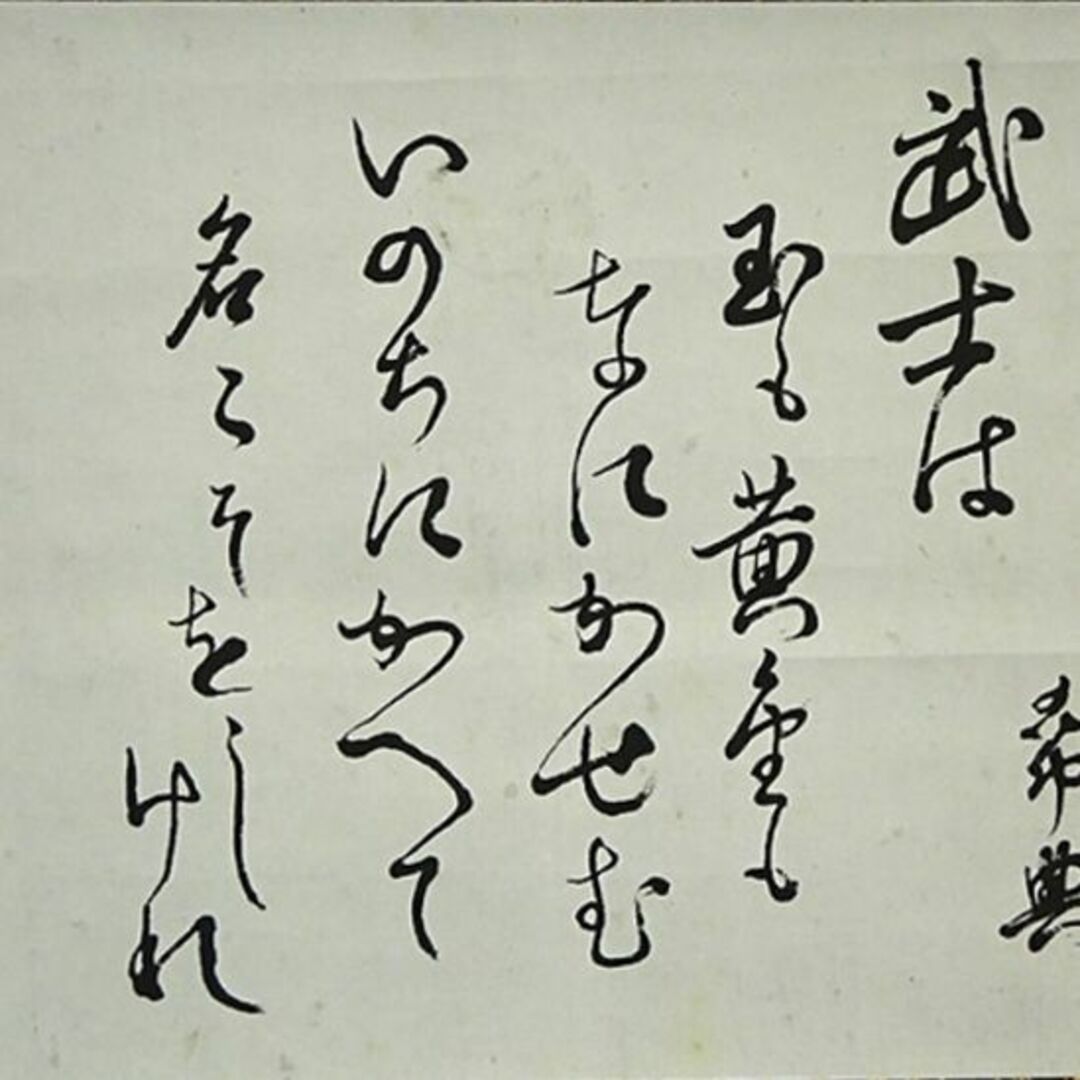 希典
武士は
玉も黄金も
なにかせむ
いのちにかへて
名こそをし
けれ